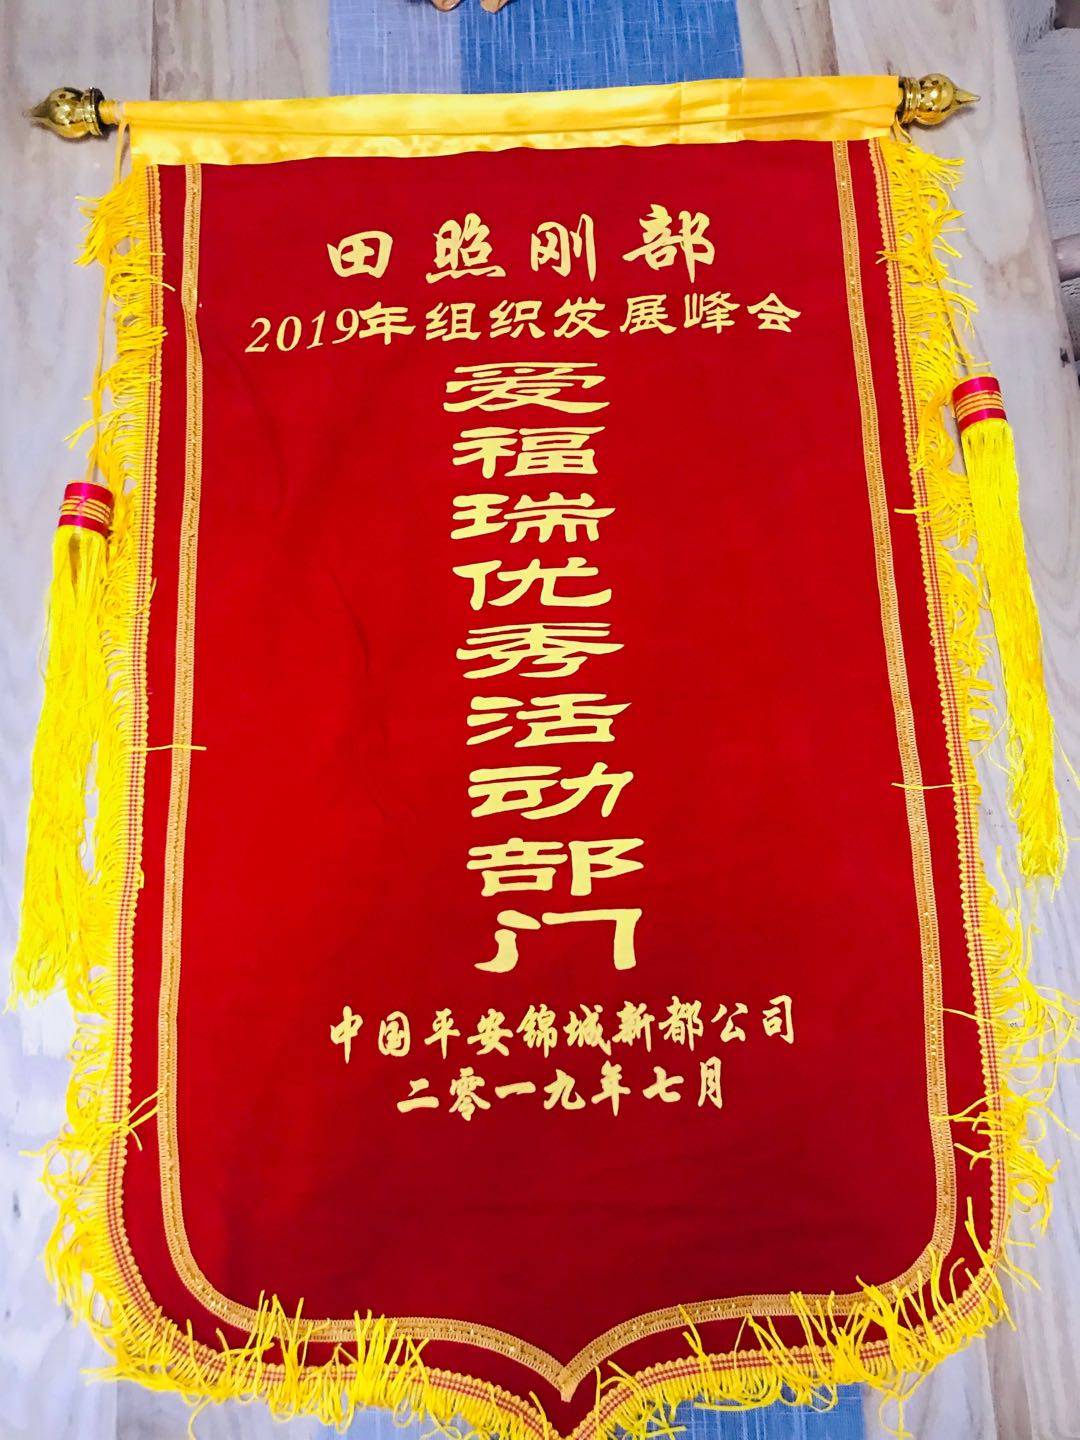 田照刚部
2019年组织发展峰会
爱福瑞优秀活动部门
中国平安锦城新都公司
二零一九年七月